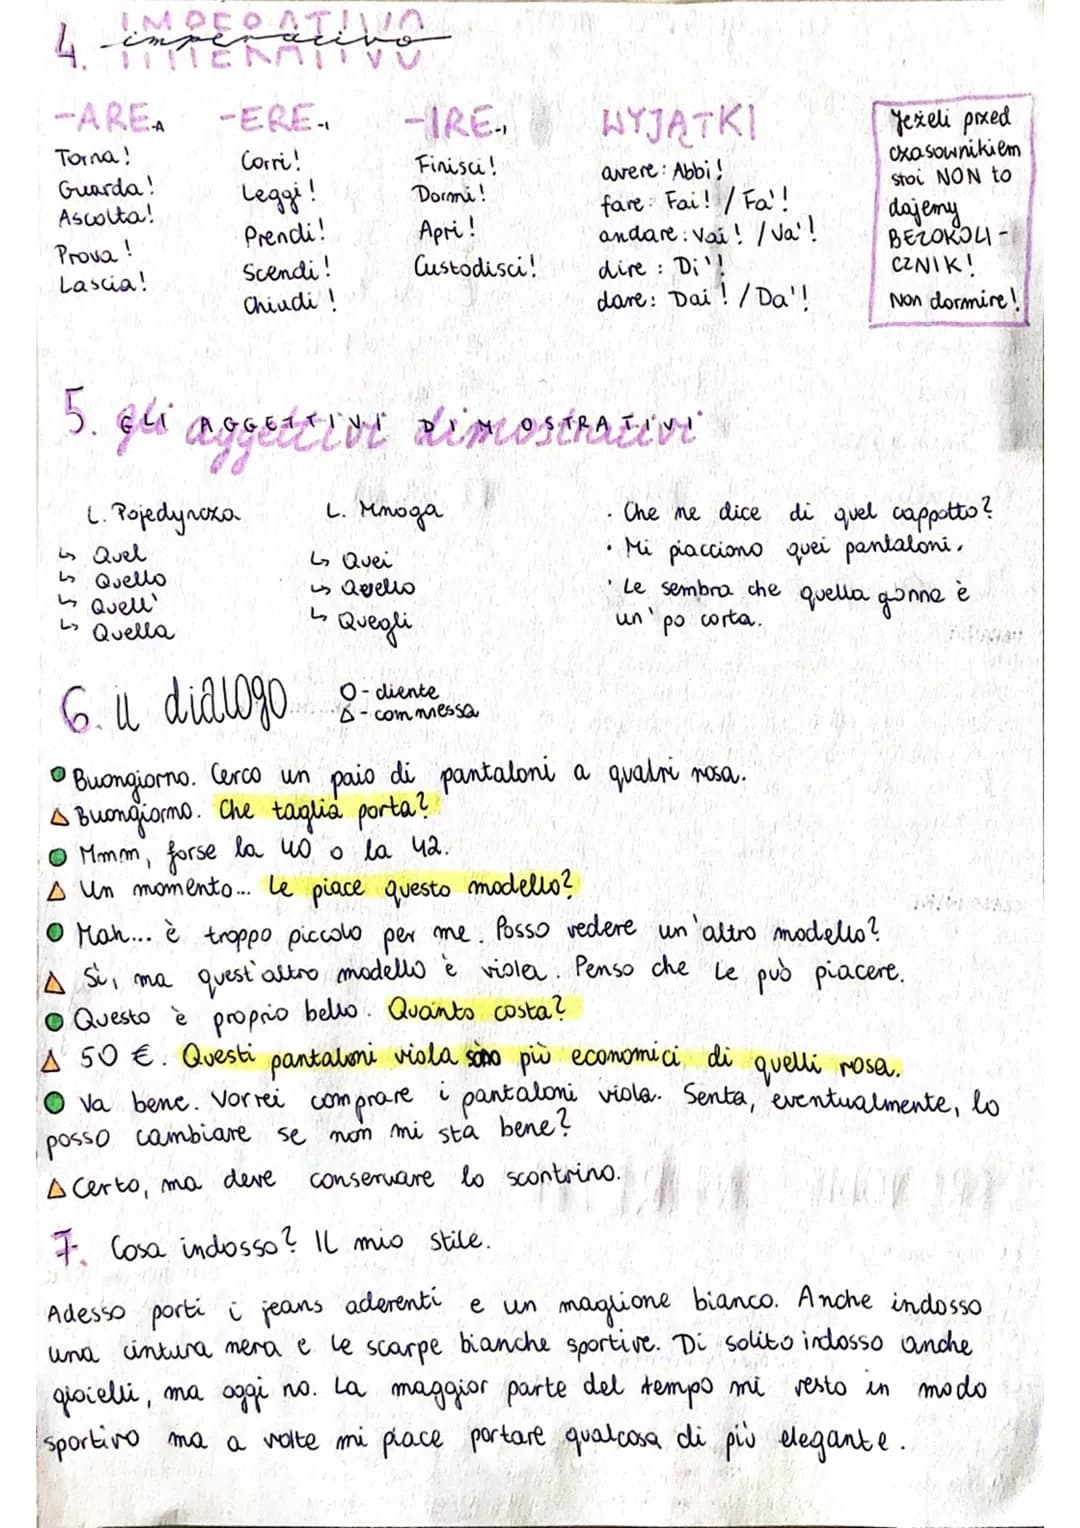 4. IMPERATIVO
imperativo
-ARE -A -ERE -I -IRE -I WYJĄTKI
Torna! Corri! Finisci! avere: Abbi!
Guarda! Leggi! Dormi! fare: Fai! / Fa'!
Ascolta! Prendi! Apri! andare: Vai! / Va'!
Prova! Scendi! Custodisci! dire: Di'!
Lascia! Chiudi! dare: Dai! / Da'!
Jeżeli przed
czasownikiem
stoi NON to
dajemy
BEZOKOLI-
CZNIK!
Non dormire!
5. gli aggettivi dimostrativi
GLI AGGETTIVI DIMOSTRATIVI
L. Pojedyncza L. Mnoga
↳ Quel ↳ Quei
↳ Quello ↳ Quello
↳ Quell' ↳ Quegli
↳ Quella
· Che ne dice di quel cappotto?
· Mi piacciono quei pantaloni.
· Le sembra che quella gonna è
un' po corta.
6. il dialogo
O - cliente
Δ - commessa
Buongiorno. Cerco un paio di pantaloni a quadri rosa.
Buongiorno. Che taglia porta?
Mmm, forse la 40 o la 42.
Un momento... Le piace questo modello?
Mah... è troppo piccolo per me. Posso vedere un'altro modello?
Sì, ma quest'altro modello è viola. Penso che Le può piacere.
Questo è proprio bello. Quanto costa?
50 €. Questi pantaloni viola sono più economici di quelli rosa.
Va bene. Vorrei comprare i pantaloni viola. Senta, eventualmente, lo
posso cambiare se non mi sta bene?
Certo, ma deve conservare lo scontrino.
7. Cosa indosso? Il mio stile.
Adesso porti i jeans aderenti e un maglione bianco. Anche indosso
una cintura nera e le scarpe bianche sportive. Di solito indosso anche
gioielli, ma oggi no. La maggior parte del tempo mi vesto in modo
sportivo ma a volte mi piace portare qualcosa di più elegante.